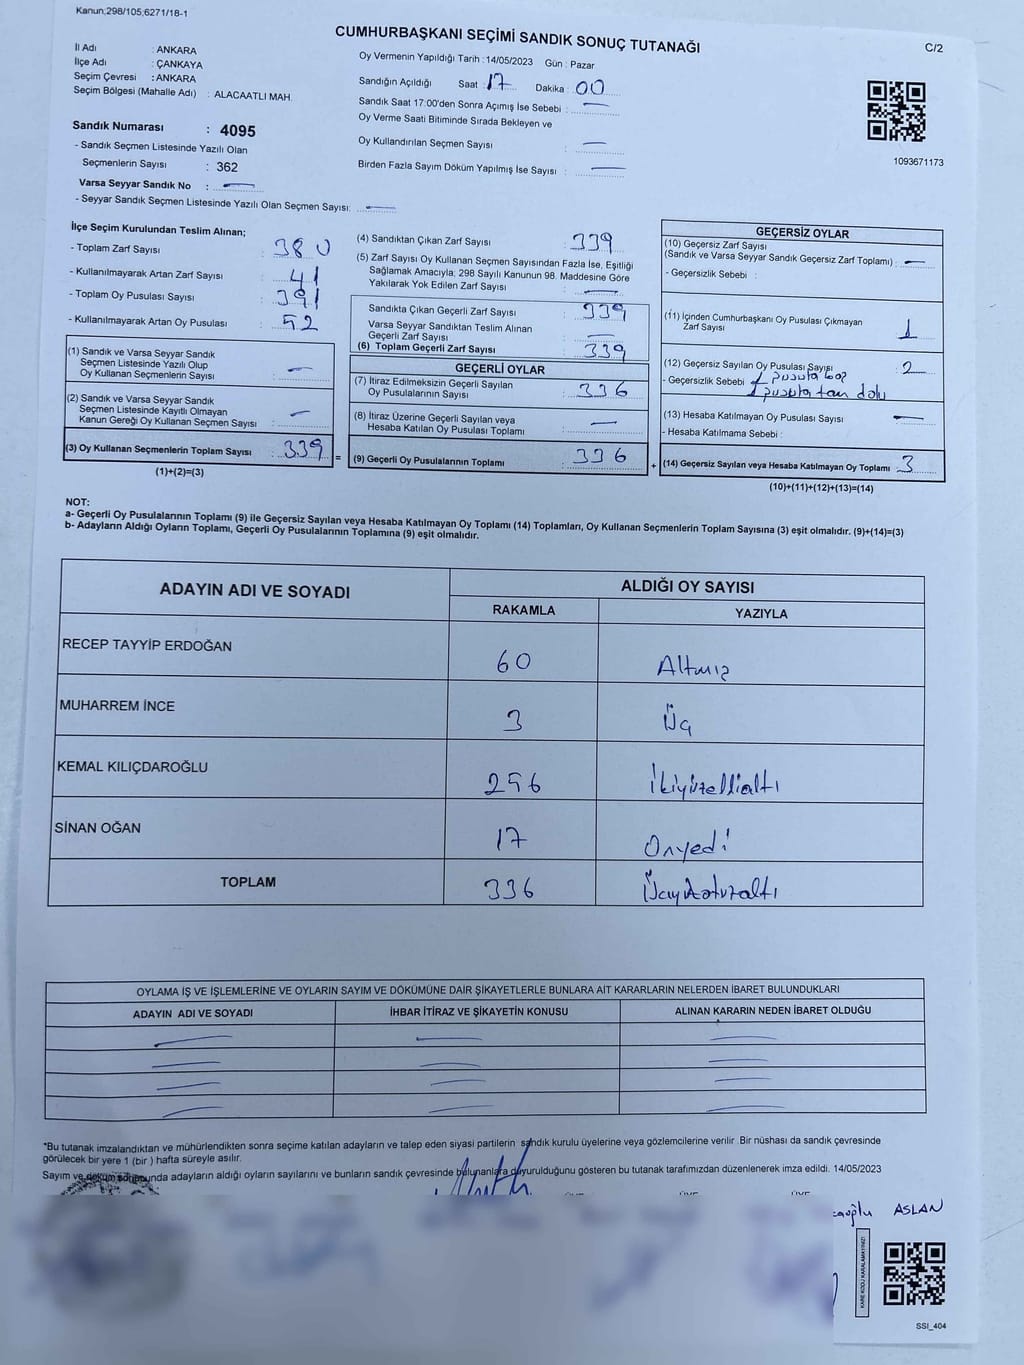 Kanun;298/105;6271/18-1
CUMHURBAŞKANI SEÇİMİ SANDIK SONUÇ TUTANAĞI
C/2
İl Adı : ANKARA
İlçe Adı : ÇANKAYA
Seçim Çevresi : ANKARA
Seçim Bölgesi (Mahalle Adı) : ALACAATLI MAH.
Sandık Numarası : 4095
- Sandık Seçmen Listesinde Yazılı Olan
Seçmenlerin Sayısı : 362
Varsa Seyyar Sandık No : —
- Seyyar Sandık Seçmen Listesinde Yazılı Olan Seçmen Sayısı: —
Oy Vermenin Yapıldığı Tarih : 14/05/2023 Gün : Pazar
Sandığın Açıldığı Saat : 17 Dakika : 00
Sandık Saat 17:00'den Sonra Açımış İse Sebebi : —
Oy Verme Saati Bitiminde Sırada Bekleyen ve
Oy Kullandırılan Seçmen Sayısı : —
Birden Fazla Sayım Döküm Yapılmış İse Sayısı : —
1093671173
İlçe Seçim Kurulundan Teslim Alınan;
- Toplam Zarf Sayısı : 380
- Kullanılmayarak Artan Zarf Sayısı : 41
- Toplam Oy Pusulası Sayısı : 391
- Kullanılmayarak Artan Oy Pusulası : 52
(1) Sandık ve Varsa Seyyar Sandık
Seçmen Listesinde Yazılı Olup
Oy Kullanan Seçmenlerin Sayısı : —
(2) Sandık ve Varsa Seyyar Sandık
Seçmen Listesinde Kayıtlı Olmayan
Kanun Gereği Oy Kullanan Seçmen Sayısı : —
(3) Oy Kullanan Seçmenlerin Toplam Sayısı : 339
(1)+(2)=(3)
(4) Sandıktan Çıkan Zarf Sayısı : 339
(5) Zarf Sayısı Oy Kullanan Seçmen Sayısından Fazla İse, Eşitliği
Sağlamak Amacıyla; 298 Sayılı Kanunun 98. Maddesine Göre
Yakılarak Yok Edilen Zarf Sayısı : —
Sandıkta Çıkan Geçerli Zarf Sayısı : 339
Varsa Seyyar Sandıktan Teslim Alınan
Geçerli Zarf Sayısı : —
(6) Toplam Geçerli Zarf Sayısı : 339
GEÇERLİ OYLAR
(7) İtiraz Edilmeksizin Geçerli Sayılan
Oy Pusulalarının Sayısı : 336
(8) İtiraz Üzerine Geçerli Sayılan veya
Hesaba Katılan Oy Pusulası Toplamı : —
= (9) Geçerli Oy Pusulalarının Toplamı : 336 +
GEÇERSİZ OYLAR
(10) Geçersiz Zarf Sayısı
(Sandık ve Varsa Seyyar Sandık Geçersiz Zarf Toplamı) : —
- Geçersizlik Sebebi :
(11) İçinden Cumhurbaşkanı Oy Pusulası Çıkmayan
Zarf Sayısı : 1
(12) Geçersiz Sayılan Oy Pusulası Sayısı : 2
- Geçersizlik Sebebi : 1 pusula boş
1 pusula tam dolu
(13) Hesaba Katılmayan Oy Pusulası Sayısı : —
- Hesaba Katılmama Sebebi :
(14) Geçersiz Sayılan veya Hesaba Katılmayan Oy Toplamı : 3
(10)+(11)+(12)+(13)=(14)
NOT:
a- Geçerli Oy Pusulalarının Toplamı (9) ile Geçersiz Sayılan veya Hesaba Katılmayan Oy Toplamı (14) Toplamları, Oy Kullanan Seçmenlerin Toplam Sayısına (3) eşit olmalıdır. (9)+(14)=(3)
b- Adayların Aldığı Oyların Toplamı, Geçerli Oy Pusulalarının Toplamına (9) eşit olmalıdır.
ADAYIN ADI VE SOYADI
ALDIĞI OY SAYISI
RAKAMLA YAZIYLA
RECEP TAYYİP ERDOĞAN 60 Altmış
MUHARREM İNCE 3 Üç
KEMAL KILIÇDAROĞLU 256 İkiyüzellialtı
SİNAN OĞAN 17 Onyedi
TOPLAM 336 Üçyüzotuzaltı
OYLAMA İŞ VE İŞLEMLERİNE VE OYLARIN SAYIM VE DÖKÜMÜNE DAİR ŞİKAYETLERLE BUNLARA AİT KARARLARIN NELERDEN İBARET BULUNDUKLARI
ADAYIN ADI VE SOYADI İHBAR İTİRAZ VE ŞİKAYETİN KONUSU ALINAN KARARIN NEDEN İBARET OLDUĞU
*Bu tutanak imzalandıktan ve mühürlendikten sonra seçime katılan adayların ve talep eden siyasi partilerin sandık kurulu üyelerine veya gözlemcilerine verilir. Bir nüshası da sandık çevresinde
görülecek bir yere 1 (bir ) hafta süreyle asılır.
Sayım ve döküm sonunda adayların aldığı oyların sayılarını ve bunların sandık çevresinde bulunanlara duyurulduğunu gösteren bu tutanak tarafımızdan düzenlenerek imza edildi. 14/05/2023
ASLAN
KARE KODU KARALAMAYINIZ!
SSI_404